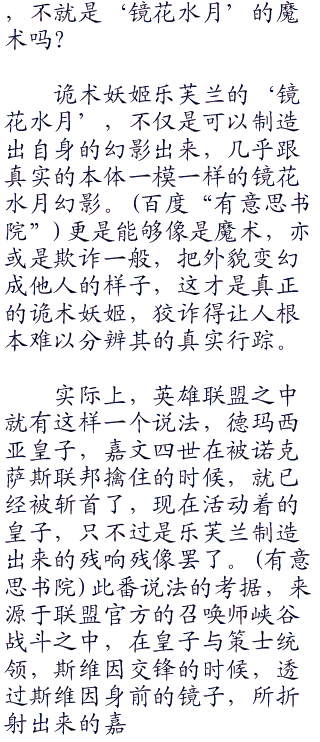 ，不就是‘镜花水月’的魔
术吗？
诡术妖姬乐芙兰的‘镜
花水月’，不仅是可以制造
出自身的幻影出来，几乎跟
真实的本体一模一样的镜花
水月幻影。(百度“有意思书
院”) 更是能够像是魔术，亦
或是欺诈一般，把外貌变幻
成他人的样子，这才是真正
的诡术妖姬，狡诈得让人根
本难以分辨其的真实行踪。
实际上，英雄联盟之中
就有这样一个说法，德玛西
亚皇子，嘉文四世在被诺克
萨斯联邦擒住的时候，就已
经被斩首了，现在活动着的
皇子，只不过是乐芙兰制造
出来的残响残像罢了。(有意
思书院) 此番说法的考据，来
源于联盟官方的召唤师峡谷
战斗之中，在皇子与策士统
领，斯维因交锋的时候，透
过斯维因身前的镜子，所折
射出来的嘉